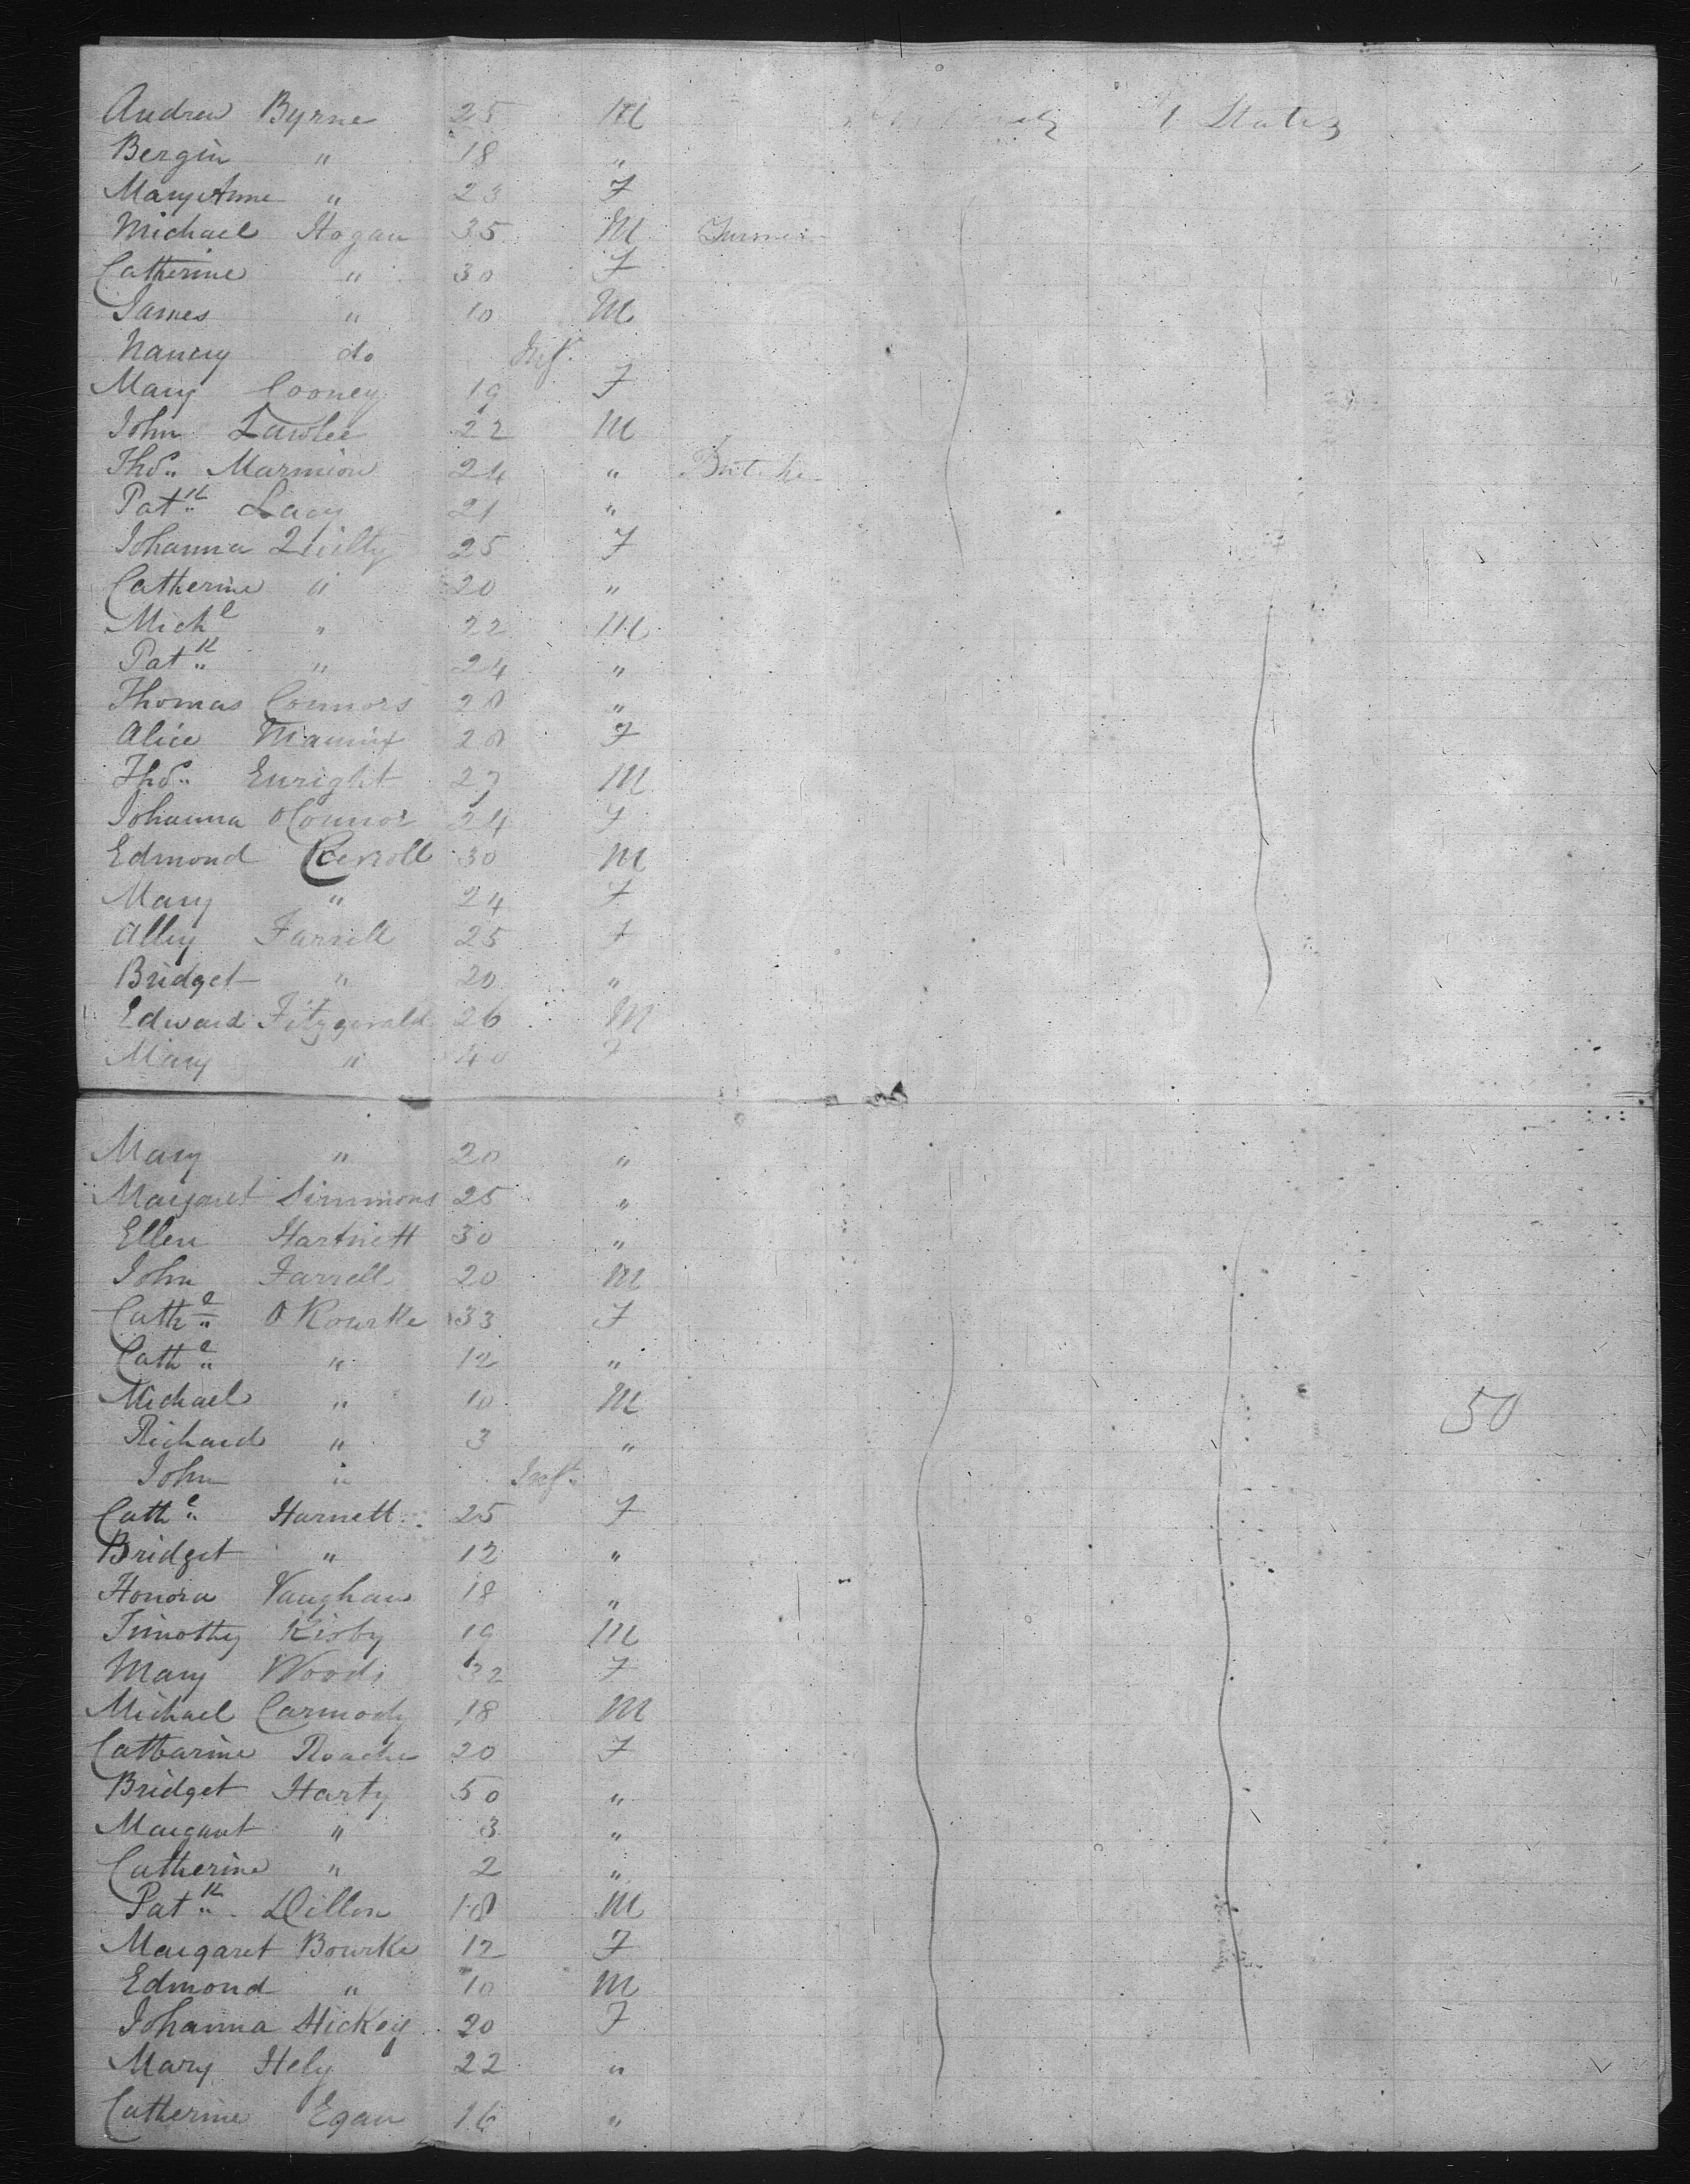 Andrew Byrne 25 M States
Bergin " 18 "
Mary Anne " 23 F
Michael Hogan 35 M Farmer
Catherine " 30 F
James " 10 M
Nancy do Inft.
Mary Cooney 19 F
John Lawlee 22 M
Thos. Marmion 24 "
Patk Lacy 21 "
Johanna Quilty 25 F
Catherine " 20 "
Michl " 22 M
Patk " 24 "
Thomas Connors 28 "
Alice Mannix 28 F
Thos. Enright 27 M
Johanna O Connor 24 F
Edmond Carroll 30 M
Mary " 24 F
Alley Farrell 25 F
Bridget " 20 "
Edward Fitzgerald 26 M
Mary " 40 F
Mary " 20 "
Margaret Simmons 25 "
Ellen Hartnett 30 "
John Farrell 20 M
Cathe O Rourke 33 F
Cathe " 12 "
Michael " 10 M
Richard " 3 " 50
John " Inft.
Cathe Harnett 25 F
Bridget " 12 "
Honora Vaughan 18 "
Timothy Kirby 19 M
Mary Woods 32 F
Michael Carmody 18 M
Catharine Roache 20 F
Bridget Harty 50 "
Margaret " 3 "
Catherine " 2 "
Patk Dillon 18 M
Margaret Bourke 12 F
Edmond " 10 M
Johanna Hickey 20 F
Mary Hely 22 "
Catherine Egan 16 "